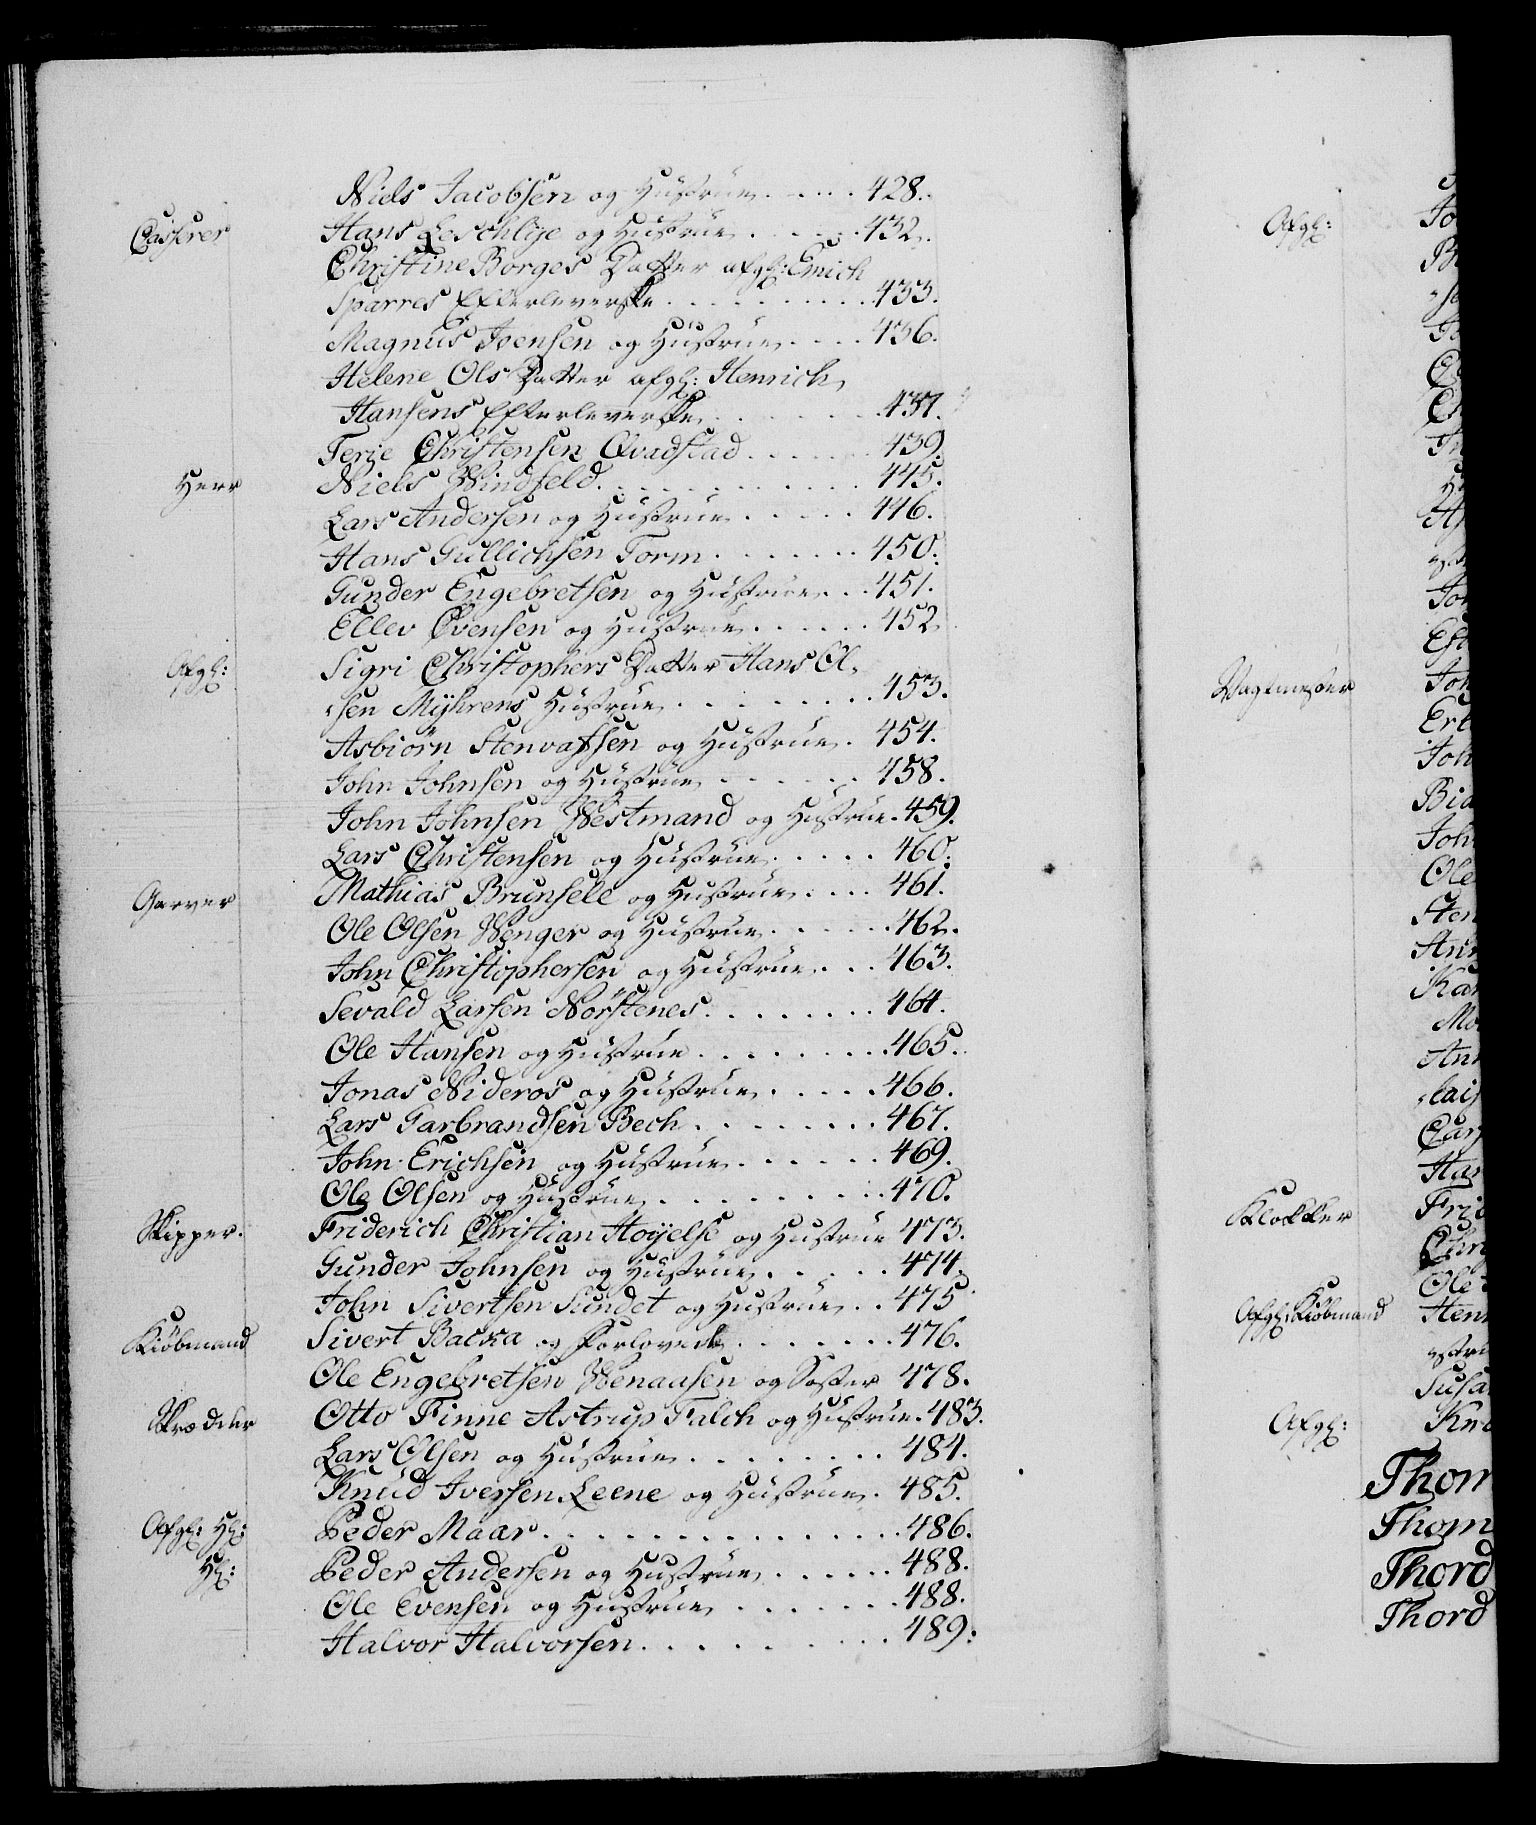 Niels Jacobsen og Hustrue . . . . . 428.
Casserer Hans Leschlÿe og Hustrue . . . . . 432.
Christine Borges Datter afgl: Emich
Sparres Efterleverske . . . . . . . . . 433.
Magnus Joensen og Hustrue . . . . 436.
Helene Ols Datter afgl: Henrich
Hansens Efterleverske . . . . . . . 437.
Terje Christensen Qvadstad . . . . . 439.
Herr Niels Windfeld . . . . . . . . . . . 445.
Lars Andersen og Hustrue . . . . . 446.
Hans Gullichsen Torm . . . . . . . 450.
Gunder Engebretsen og Hustrue . . . 451.
Ellev Evensen og Hustrue . . . . . . 452
Afgl: Sigri Christophers Datter Hans Ol-
sen Mÿhrens Hustrue . . . . . . . . 453.
Asbiørn Stenvassen og Hustrue . 454.
John Johnsen og Hustrue . . . . . . 458.
John Johnsen Westmand og Hustrue . 459.
Lars Christensen og Hustrue . . . . . 460.
Garver Mathias Brunsele og Hustrue . . . . 461.
Ole Olsen Wenger og Hustrue . . . . . . 462.
John Christophersen og Hustrue . . . 463.
Sevald Larsen Norstenes . . . . . . . . 464.
Ole Hansen og Hustrue . . . . . . . . 465.
Jonas Nideros og Hustrue . . . . . 466.
Lars Garbrandsen Bech . . . . . . . . 467.
John Erichsen og Hustrue . . . . . . 469.
Ole Olsen og Hustrue . . . . . . . . . 470.
Skipper. Friderich Christian Hoÿelse og Hustrue 473.
Gunder Johnsen og Hustrue . . . . . 474.
John Sivertsen Sundet og Hustrue . . 475
Kiøbmand Sivert Backa og Forlovede . . . . . . . 476.
Ole Engebretsen Wenaasen og Søster 478.
Skrædder Otto Finne Astrup Falch og Hustrue . 483.
Lars Olsen og Hustrue . . . . . . . . 484.
Knud Iversen Leene og Hustrue . 485.
Afgl: Hl: Peder Maar . . . . . . . . . . . . . . 486.
Hl: Peder Andersen og Hustrue . . . . . . 488.
Ole Evensen og Hustrue . . . . . . . 488.
Halvor Halvorsen . . . . . . . . . . 489:
Afgl: Jo
Vagtmester Joh
Erl
Joh
Joh
Ole
Sten
Ann
Kar
Ann
Klokker Frid
Chri
Ole
Afgl. Kiøbmand Hen
Susa
Afgl: Knu
Thom
Thom
Thord
Thord